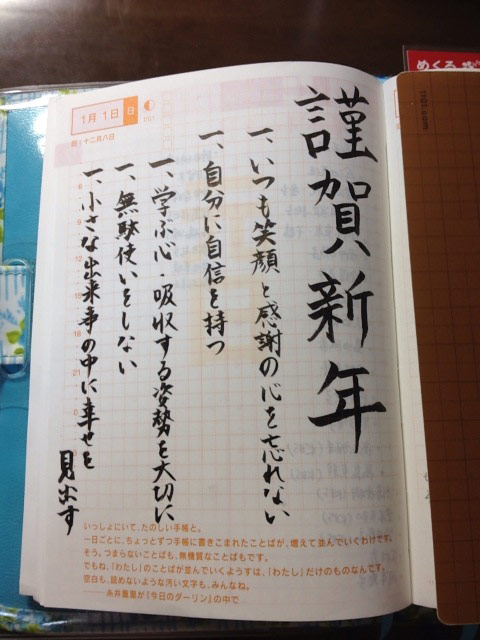 謹賀新年
一、いつも笑顔と感謝の心を忘れない
一、自分に自信を持つ
一、学ぶ心・吸収する姿勢を大切に
一、無駄使いをしない
一、小さな出来事の中に幸せを
見出す
1月1日 日
旧:十二月八日
いっしょにいて、たのしい手帳と。
一日ごとに、ちょっとずつ手帳に書きこまれたことばが、増えて並んでいくわけです。
そう。つまらないことばも、無機質なことばもです。
でもね、「わたし」のことばが並んでいくようすは、「わたし」だけのものなんです。
空白も、読めないような汚い文字も、みんなね。
——糸井重里が『今日のダーリン』の中で
めくる